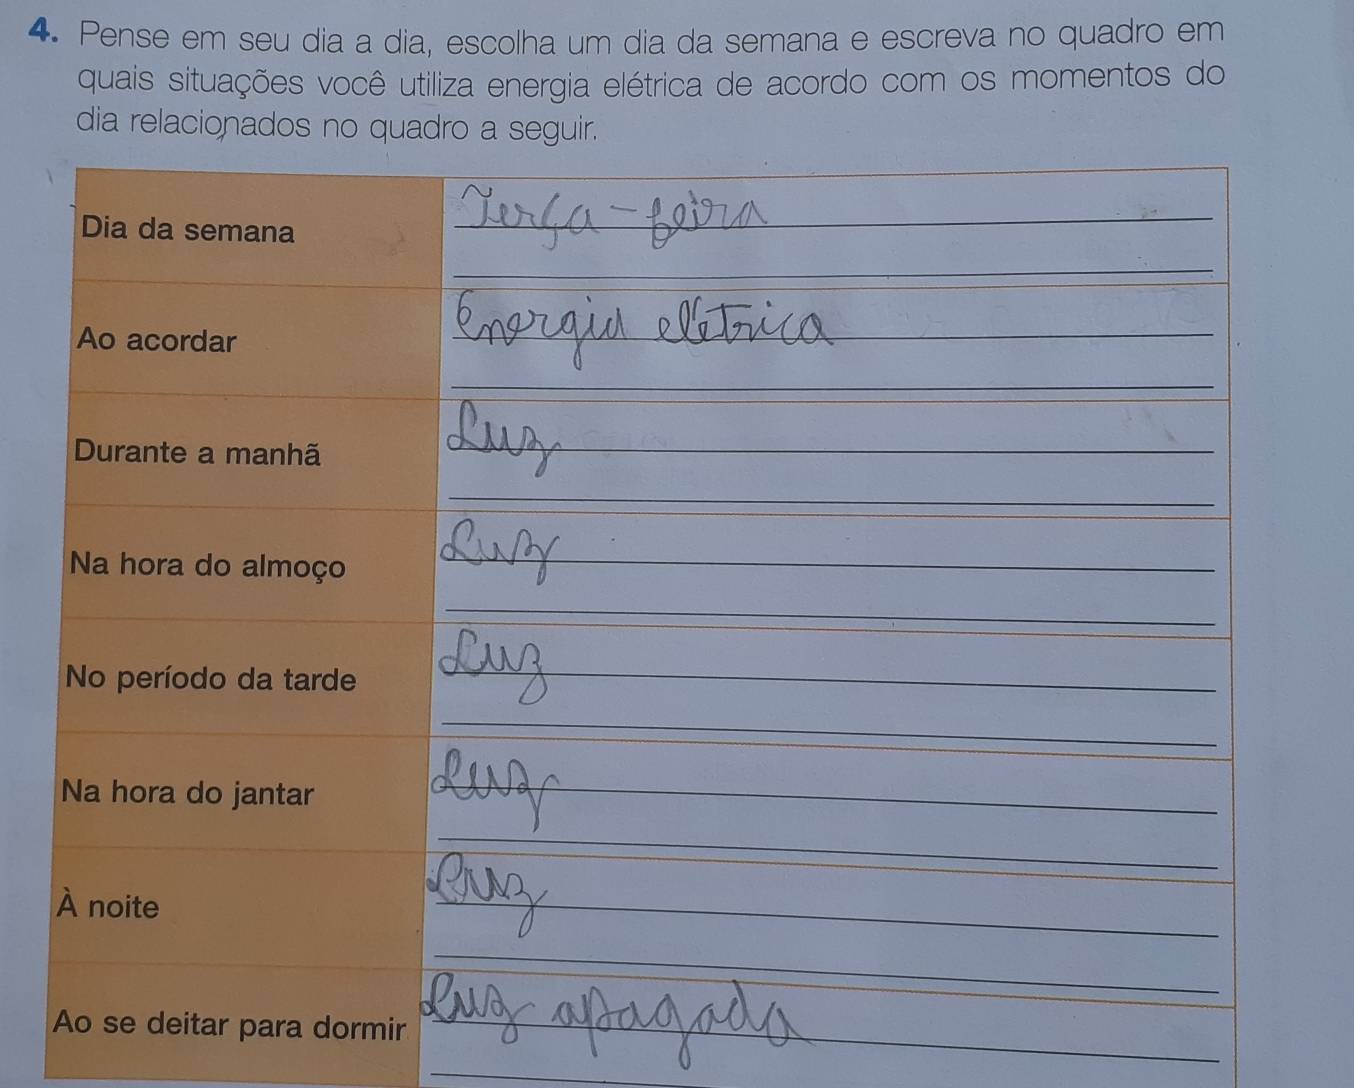 4. Pense em seu dia a dia, escolha um dia da semana e escreva no quadro em
quais situações você utiliza energia elétrica de acordo com os momentos do
dia relacionados no quadro a seguir.
Dia da semana Terça-feira
Ao acordar Energia elétrica
Durante a manhã Luz
Na hora do almoço Luz
No período da tarde Luz
Na hora do jantar Luz
À noite Luz
Ao se deitar para dormir Luz apagada